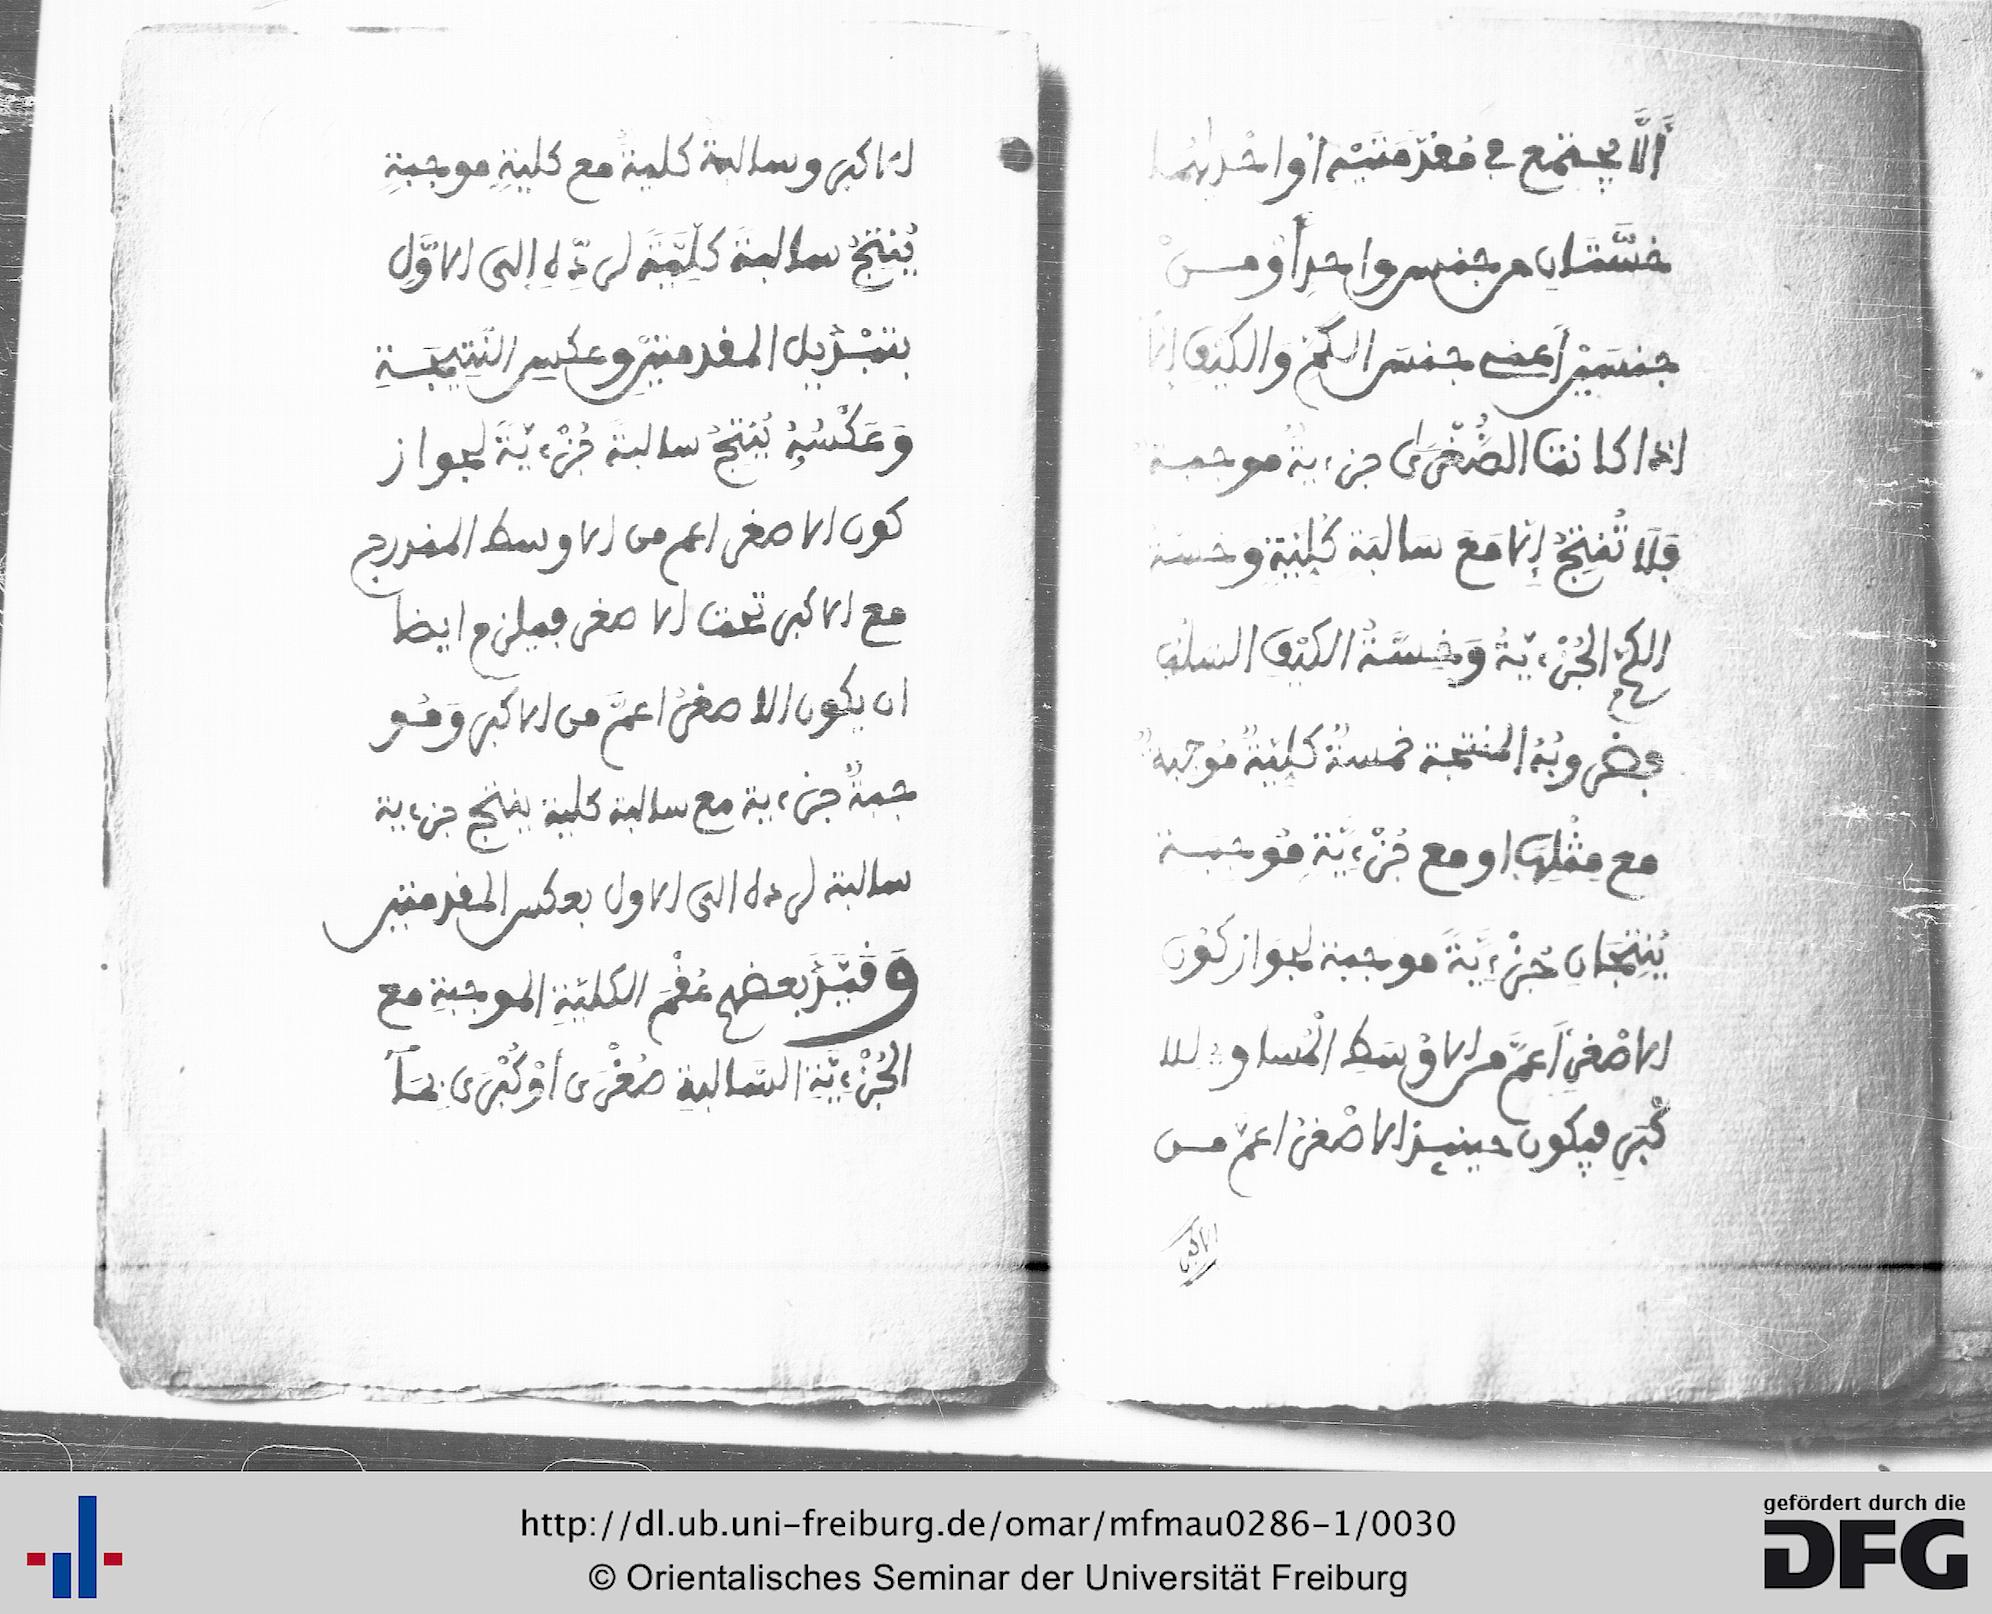 أَلَّا يجتمع في مُقدّمَتَيْه أوْ احْدَاهُما
خسَّتَانِ من جنس واحدٍ أوْ مِنْ
جنسَيْن أَعنى جنسَ الكَمّ وَالكَيْفِ إلَّا
اذا كانت الصُّغْرَى جزءيةً موجبة
فَلَا تُنتِجُ إلَّا مَعَ سَالبَة كُلِيَةٍ وخسّة
الكمّ الجُزْءيّةُ وَخِسَّةُ الكَيْفِ السلبُ
فضروبُهُ المنتجة خمسةٌ كليّةٌ مُوجبةٌ
مع مِثْلِهَا او مع جُزْءيّةٍ مُوجبَة
يُنتِجَانِ جُزْءيّةً موجبة لجواز كَوْنِ
الاصْغرِ أَعمَّ من الاوْسَطِ الْمُساوي للا
كْبَرِ فيكون حينئذ الاصْغرُ اعمّ من
الاكبر
الاكبر وسالبةٌ كليةٌ مع كليةٍ موجبةٍ
يُنتِجُ سالبةً كلِيَّةً لردّهِ إلى الاوَّلِ
بتبْدِيل المقدمتيْن وعكسِ النّتِيجَةِ
وَعَكْسُهُ يُنتِجُ سالبةً جُزْءيّةً لجواز
كون الاصغر اعم من الاوسط المندرج
مع الاكبر تحت الاصغر فيلزم ايضا
ان يكون الاصغرُ اعمَّ من الاكبر وَمُو
جبةٌ جزءية مع سالبة كلية ينتج جزءية
سالبة لرده الى الاول بعكس المقدمتين
وَقَيَّدَ بعضهم عُقْمَ الكليّةِ الموجبةِ مع
الجُزْءيّةِ السّالبةِ صُغْرَى أوْ كُبْرَى بمَا
http://dl.ub.uni-freiburg.de/omar/mfmau0286-1/0030
© Orientalisches Seminar der Universität Freiburg
gefördert durch die
DFG